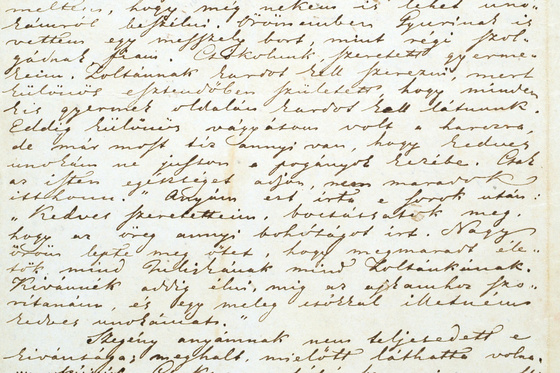 meltem, hogy míg nekem is lehet uno-
kámról beszélni. Örömemben Gyurinak is
vettem egy messzely bort, mint régi szol-
gának Csókolunk szeretett gyerme-
keim. Zoltánnak kardot kell szerezni, mert
különös esztendőben született, hogy minden
kis gyermek oldalán kardot kell látnunk.
Eddig különös vágyásom volt a harczra,
de már most tiz annyi van, hogy kedves
unokám ne jusson a pogányok kezébe. Csak
az isten egészséget adjon, nem maradok
itthonn." Anyám ezt írta e sorok után:
"Kedves szeretetteim, bocsássatok meg,
hogy az öreg annyi bohóságot írt. Nagy
öröm lepte meg őtet, hogy megmaradt éle-
tök mind mind Zoltánkának.
Kívánnék addig élni, míg az ajkamhoz szo-
rítanám, és egy meleg csókkal illetném
kedves unokámat."
Szegény anyámnak nem teljesedett e
kívánsága; meghalt, mielőtt láthatta volna